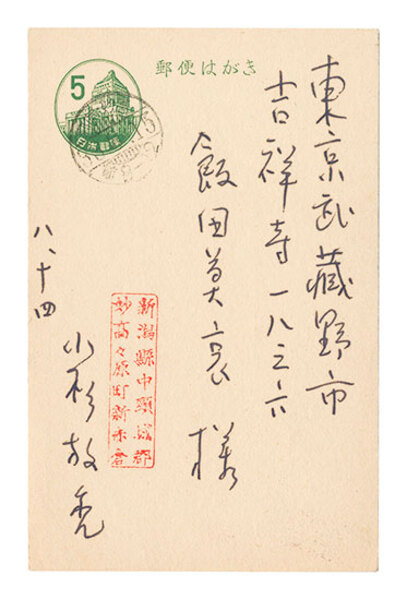 郵便はがき
5
日本郵便
東京武藏野市
吉祥寺一八三六
飯田莫哀様
新潟縣中頸城郡
妙高々原町新赤倉
八、十四
小杉放